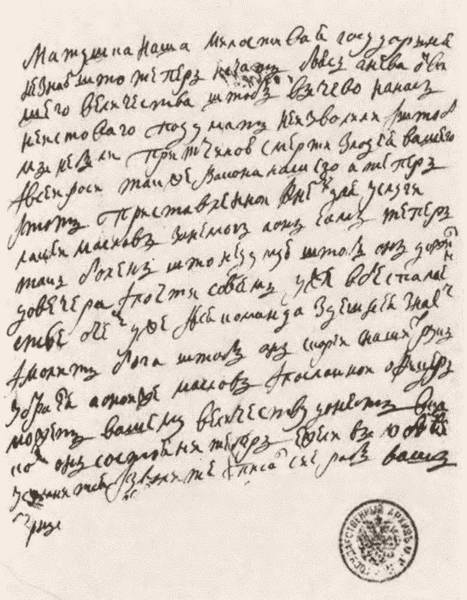 Матушка наша милостивая государыня
незнаю што теперь начать боюсь гнева от ва
шего величества штоб вы чево нанас
неистоваго подумать неизволили и штоб
мы небыли притчиною смерти злодея вашего
и всеи роси также закона нашего а теперь
и тот приставленнои кнему для услуги
лакеи маслов занемог а он сам теперь
так болен што недумаю штоб он дожил
довечера и почти совсем уже вбеспаме
стве о чем уже и вся команда здешнея знает
и молит бога штоб он скореи снаших рук
убрался а онои же маслов и посланнои офицер
может вашему величеству донесть вка
ком он состояни теперь ежели вы обо мне
усумнится изволите писал сие раб ваш
ГОСУДАРСТВЕННЫЙ АРХИВЪ